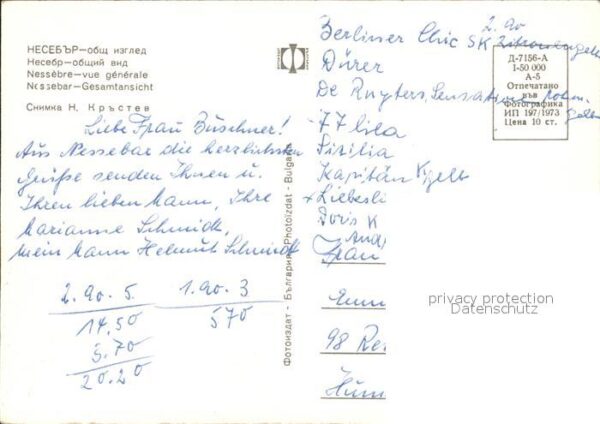 НЕСЕБЪР—общ изглед
Несебр—общий вид
Nessèbre—vue générale
Nessebar—Gesamtansicht
Снимка Н. Кръстев
Liebe Frau Büschner!
Aus Nessebar die herzlichsten
Grüße senden Ihnen u.
Ihren lieben Mann, Ihre
Marianne Schmidt,
mein Mann Helmut Schmidt
2.90. 5.
14.50
5.70
20.20
1.90. 3
570
Фотоиздат - България Photoizdat - Bulgaria
2.90
Berliner Chic SK Zitronengelb
Dürer
De Ruyters Sensation
gelb
77 lila
Sizilia
Kapitän K gelb
+ Liebesli
Doris K
And
Frau
98 Rei
Д-7156-А
I-50 000
А-5
Отпечатано
във
Фотографика
ИП 197/1973
Цена 10 ст.
privacy protection
Datenschutz